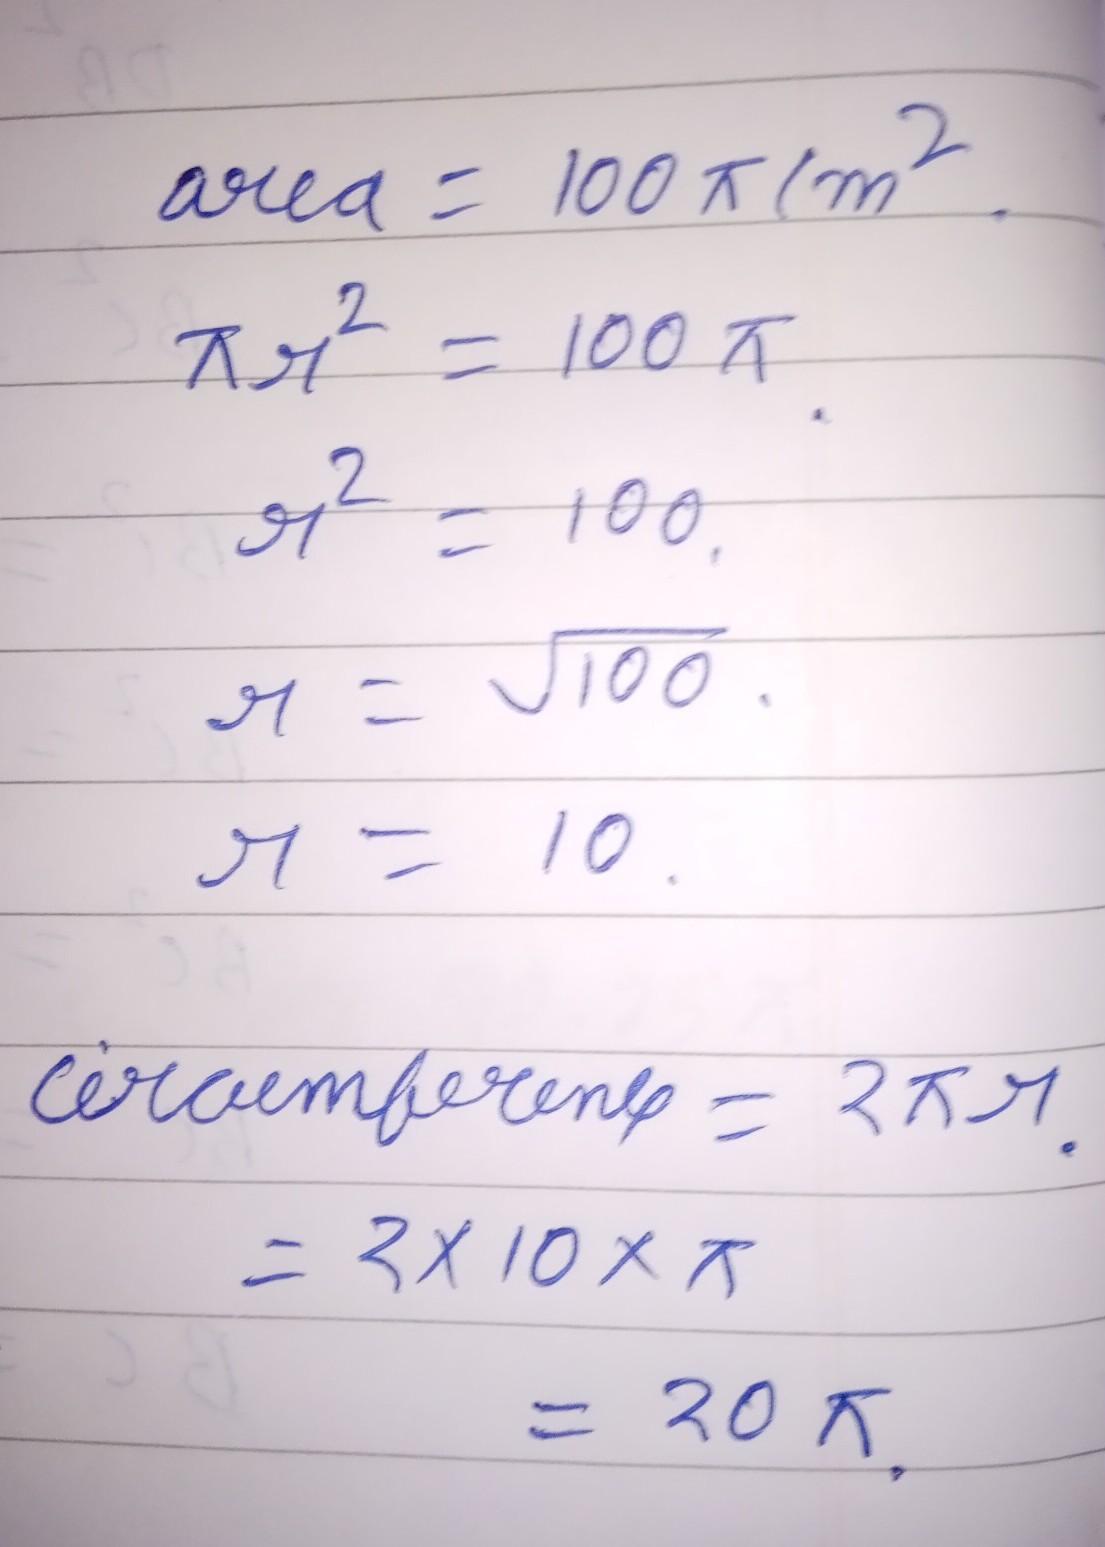 area = 100 π cm².
πr² = 100 π.
r² = 100.
r = √100.
r = 10.
circumference = 2πr.
= 2 × 10 × π
= 20 π.